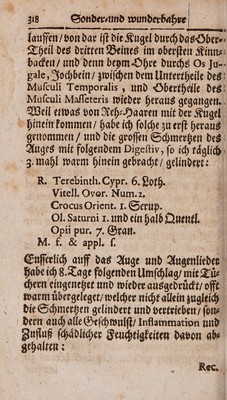 318 Sonder-und wunderbahre
lauffen/ von dar ist die Kugel durch das Ober-
Theil des dritten Beines im obersten Kinn-
backen/ und denn beym Ohre durchs Os Ju-
gale, Jochbein/ zwischen dem Untertheile des
Musculi Temporalis, und Obertheile des
Musculi Masseteris wieder heraus gegangen.
Weil etwas von Reh-Haaren mit der Kugel
hinein kommen/ habe ich solche zu erst heraus
genommen/ und die grossen Schmertzen des
Auges mit folgendem Digestiv, so ich täglich
3. mahl warm hinein gebracht/ gelindert:
R. Terebinth. Cypr. 6. Loth.
Vitell. Ovor. Num. 2.
Crocus Orient. 1. Scrup.
Ol. Saturni 1. und ein halb Quentl.
Opii pur. 7. Gran.
M. f. & appl. s.
Eusserlich auff das Auge und Augenlieder
habe ich 8. Tage folgenden Umschlag/ mit Tü-
chern eingenetzet und wieder ausgedrückt/ offt
warm übergeleget/ welcher nicht allein zugleich
die Schmertzen gelindert und vertrieben/ son-
dern auch alle Geschwulst/ Inflammation und
Zufluß schädlicher Feuchtigkeiten davon ab-
gehalten:
Rec.